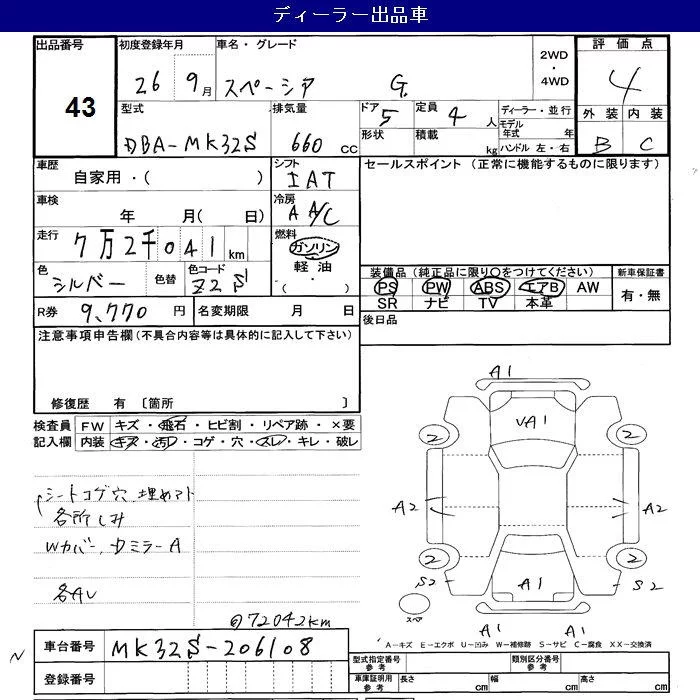 ディーラー出品車
出品番号 初度登録年月 車名・グレード 2WD ・ 4WD 評価点
43 26 9月 スペーシア G 4
型式 排気量 ドア 定員 ディーラー・並行 外装 内装
DBA-MK32S 660cc 5 4人 モデル年式 年 B C
形状 積載 kg ハンドル 左・右
車歴 シフト セールスポイント (正常に機能するものに限ります)
自家用・( ) IAT
車検 冷房
年 月(日) A A/C
走行 7万2千041km 燃料 ガソリン
色 シルバー 色替 色コード Z2S 軽油 ( ・ )
装備品(純正品に限り○をつけてください) 新車保証書
PS PW ABS エアB AW 有・無
SR ナビ TV 本革
R券 9,770円 名変期限 月 日 後日品
注意事項申告欄(不具合内容等は具体的に記入して下さい)
修復歴 有 〔箇所 〕
検査員 FW キズ・飛石・ヒビ割・リペア跡・×要
記入欄 内装 キズ・汚れ・コゲ・穴・スレ・キレ・破レ
シートコゲ穴 埋めアト
各所しみ
Wカバー、Dミラー A
各AU
◎72042km
A1
VA1
2 2
A2 A2
2 2
S2 A1 S2
スペア
A1 A1
A−キズ E−エクボ U−凹み W−補修跡 S−サビ C−腐食 XX−交換済
車台番号 MK32S-206108
登録番号
型式指定番号 参考 類別区分番号 参考
車庫証明用 参考 長さ cm 幅 cm 高さ cm